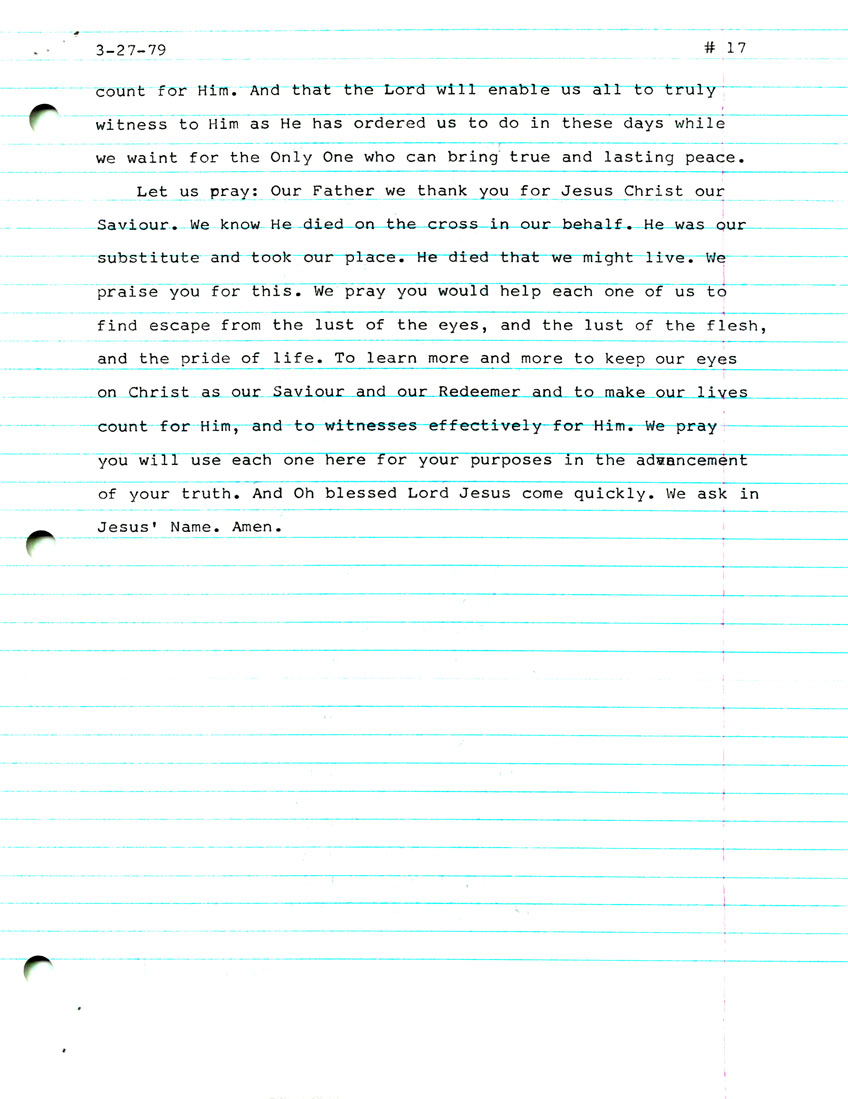 3-27-79 # 17
count for Him. And that the Lord will enable us all to truly
witness to Him as He has ordered us to do in these days while
we waint for the Only One who can bring true and lasting peace.
Let us pray: Our Father we thank you for Jesus Christ our
Saviour. We know He died on the cross in our behalf. He was our
substitute and took our place. He died that we might live. We
praise you for this. We pray you would help each one of us to
find escape from the lust of the eyes, and the lust of the flesh,
and the pride of life. To learn more and more to keep our eyes
on Christ as our Saviour and our Redeemer and to make our lives
count for Him, and to witnesses effectively for Him. We pray
you will use each one here for your purposes in the advancement
of your truth. And Oh blessed Lord Jesus come quickly. We ask in
Jesus' Name. Amen.